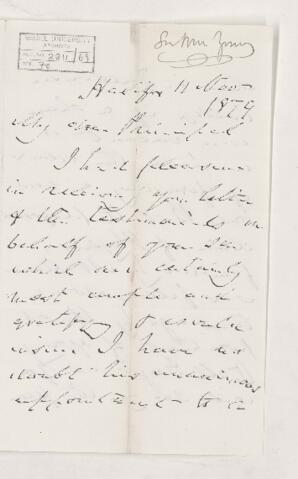 Sir Wm Young
Halifax 11 Nov
1879
My dear Principal
I had pleasure
in receiving your letter
& the testimonials in
behalf of your son
which are certainly
most ample and
gratifying
I have no
doubt his unanimous
appointment to a